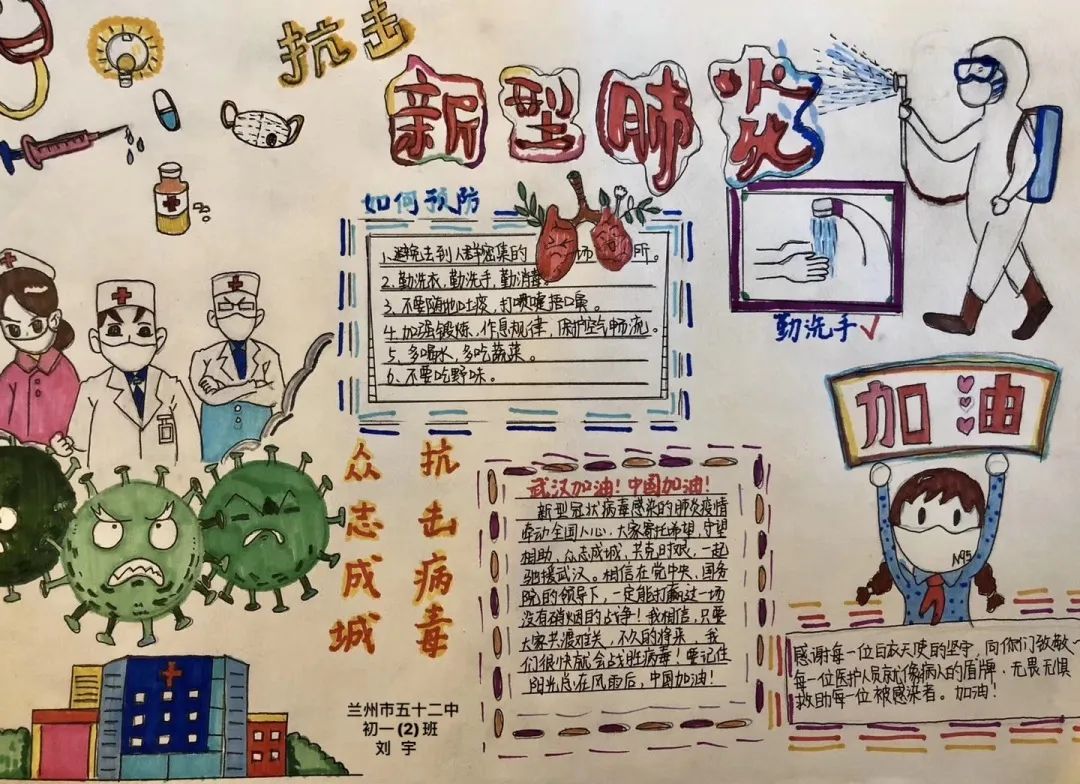 抗击
新型肺炎
如何预防
1.避免去到人群密集的 场所。
2.勤洗衣,勤洗手,勤消毒。
3、不要随地吐痰,打喷嚏捂口鼻。
4.加强锻炼,作息规律,保护空气畅流。
5、多喝水,多吃蔬菜。
6、不要吃野味。
勤洗手✓
加油
N95
众志成城
抗击病毒
武汉加油!中国加油!
新型冠状病毒感染的肺炎疫情
牵动全国人心,大家寄托希望,守望
相助,众志成城,共克时艰,一起
驰援武汉。相信在党中央,国务
院的领导下,一定能打赢这一场
没有硝烟的战争!我相信,只要
大家共渡难关,不久的将来,我
们很快就会战胜病毒!要记住
阳光总在风雨后,中国加油!
感谢每一位白衣天使的坚守,向你们致敬
每一位医护人员就像病人的盾牌,无畏无惧
救助每一位被感染者。加油!
兰州市五十二中
初一(2)班
刘 宇